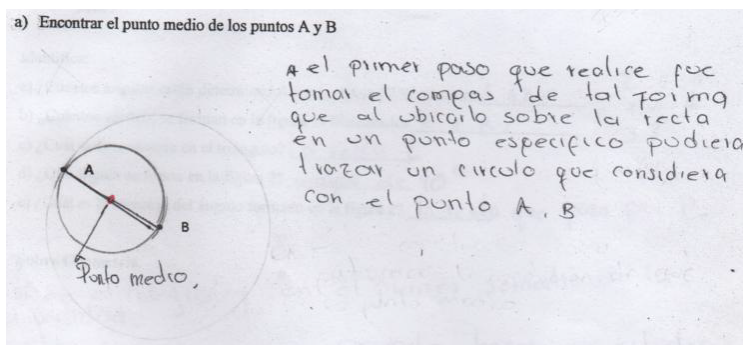 a) Encontrar el punto medio de los puntos A y B
A el primer paso que realice fue
tomar el compas de tal forma
que al ubicarlo sobre la recta
en un punto especifico pudiera
trazar un circulo que considiera
con el punto A. B
A
B
Punto medio.